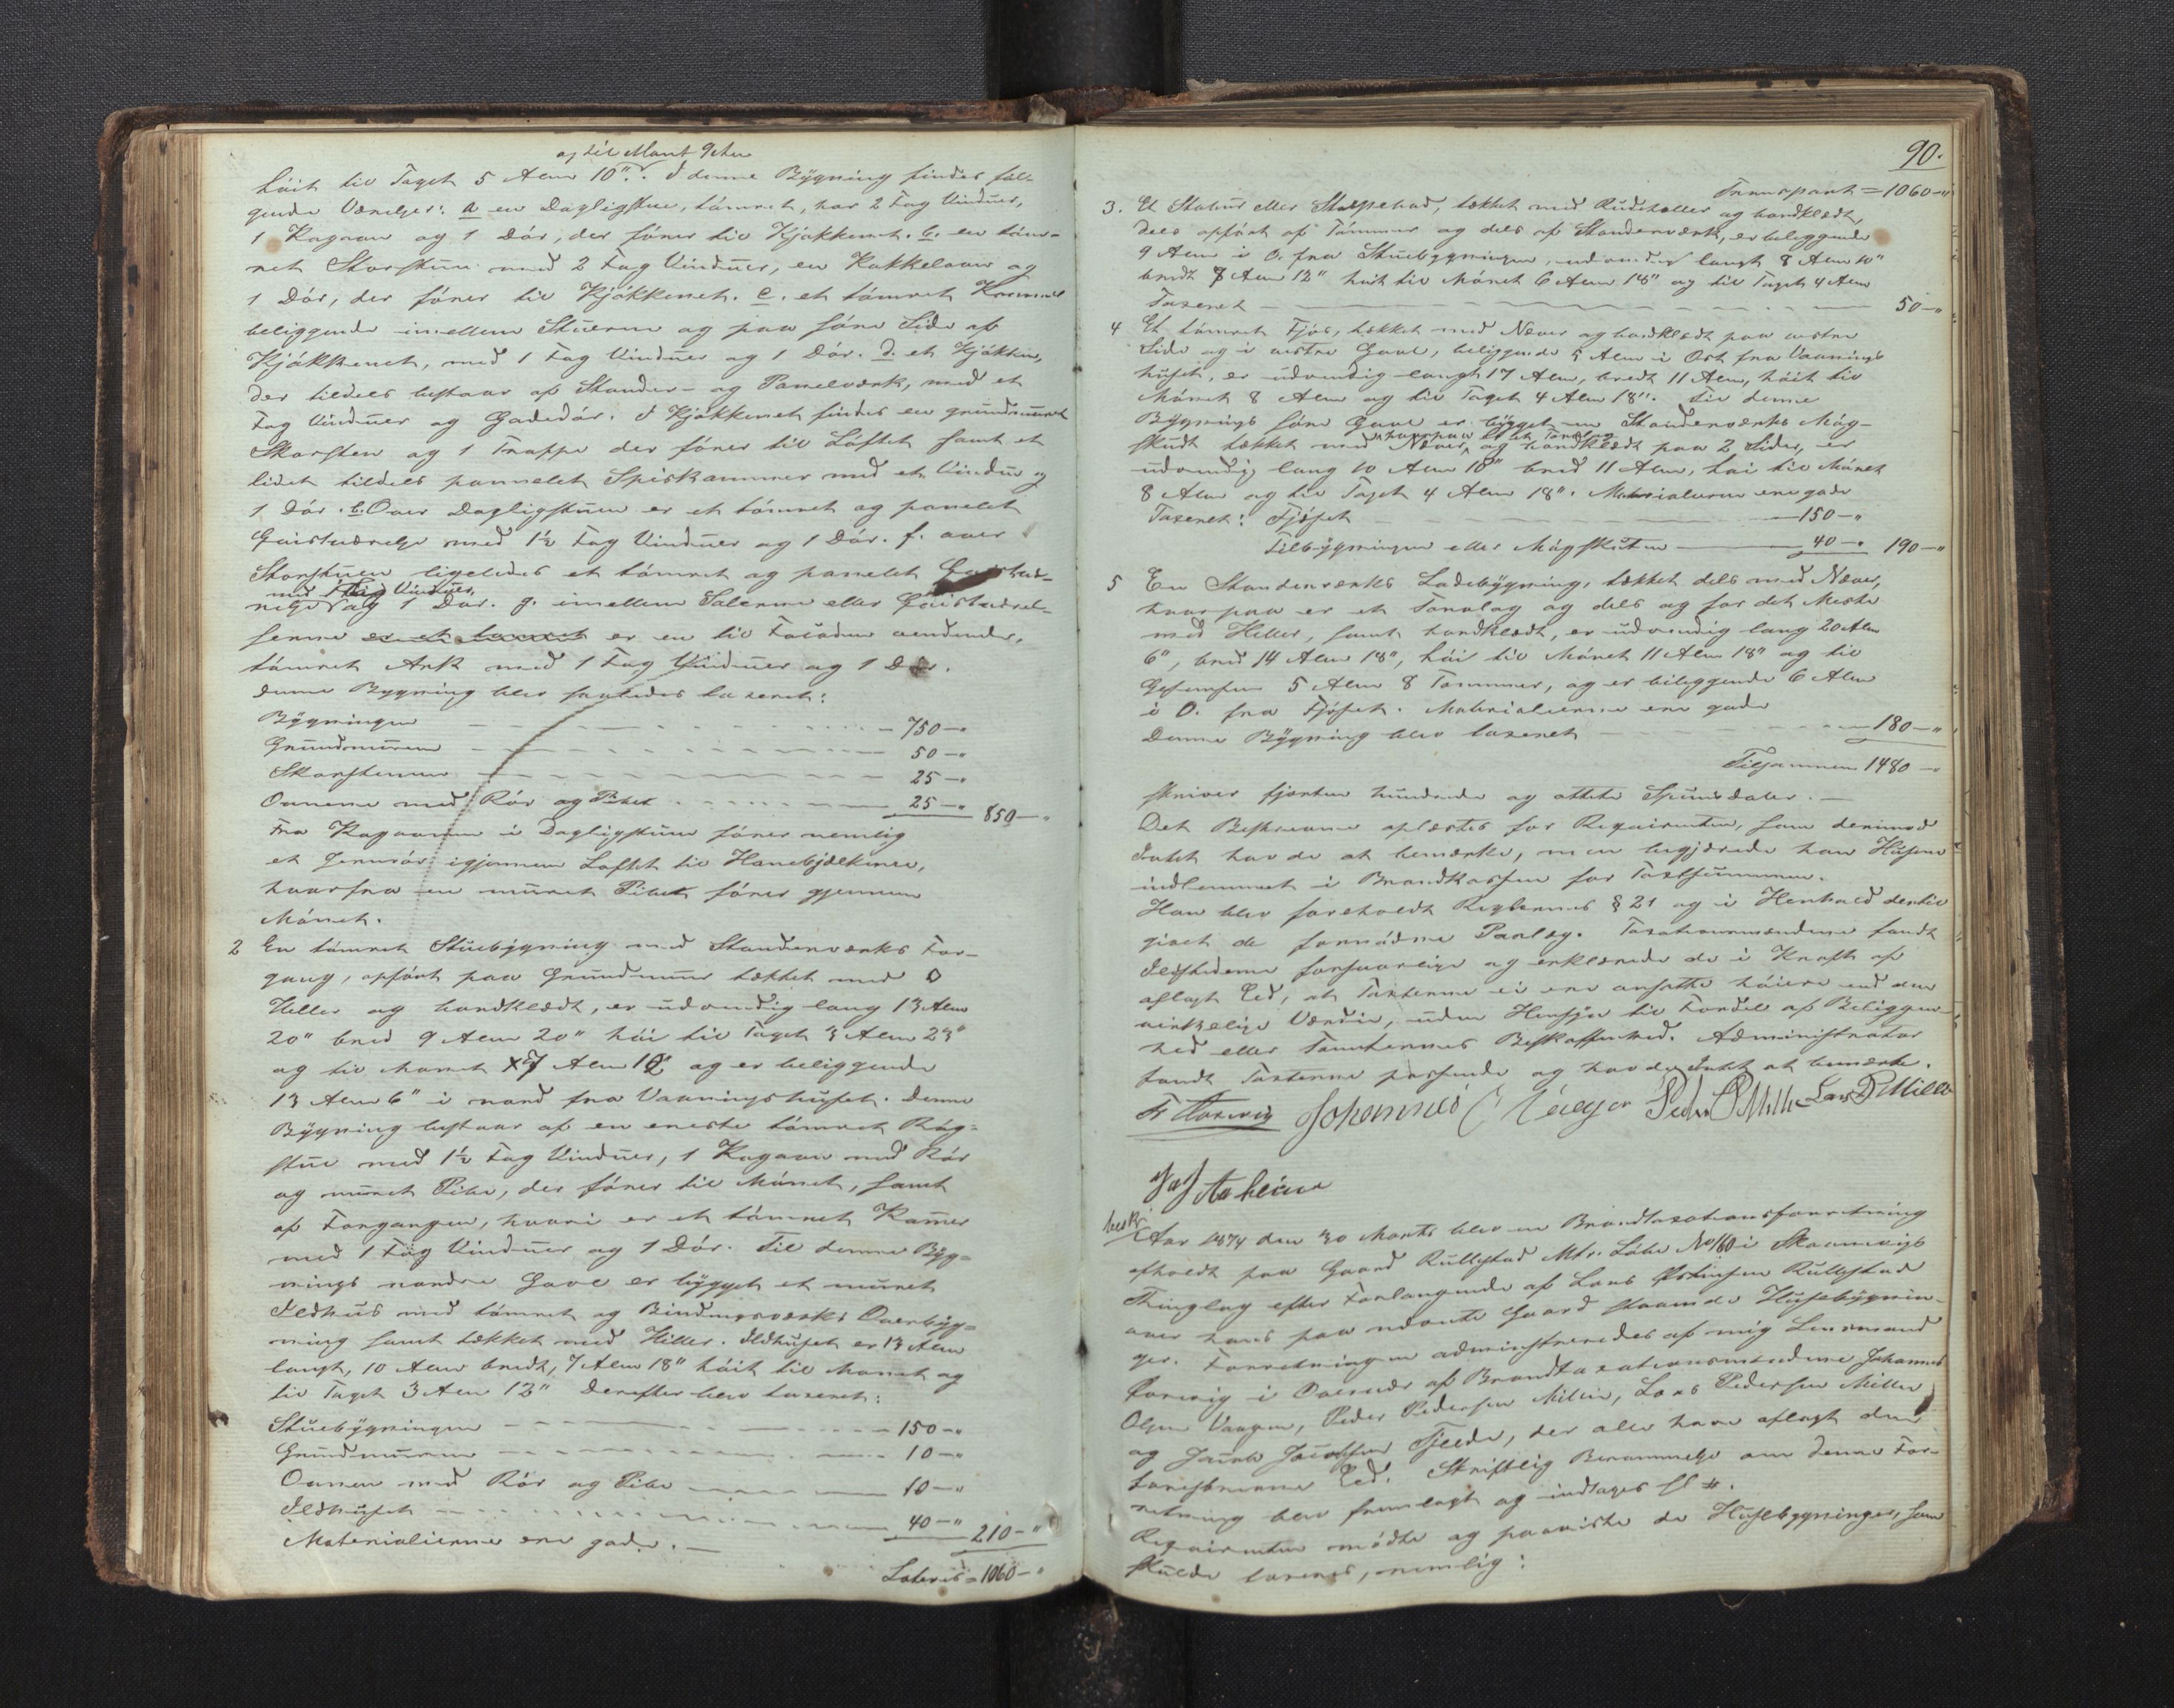 og til Mønt 9 Alen
høit til Taget 5 Alen 10". I denne Bygning findes føl-
gende Værelser: a en Dagligstue, tømret, har 2 Fag Vinduer,
1 Kogovn og 1 Dør, der fører til Kjøkkenet. b. en tøm-
ret Storstue med 2 Fag Vinduer, en Kakkelovn og
1 Dør, der fører til Kjøkkenet. c. et tømret Kammer
beliggende imellem Stuerne og paa søre Side af
Kjøkkenet, med 1 Fag Vinduer og 1 Dør. d. et Kjøkken,
der tildels bestaar af Stander- og Panelværk, med et
Fag Vinduer og Gadedør. I Kjøkkenet findes en grundmuret
Skorsten og 1 Trappe der fører til Loftet samt et
lidet tildels pannelet Spiskammer med et Vindu og
1 Dør. e. Over Dagligstuen er et tømret og panelet
Gjæsteværelse med 1½ Fag Vinduer og 1 Dør. f. over
Storstuen ligeledes et tømret og panelet Gjæstevæ-
med 1 Fag Vinduer
relse og 1 Dør. g. imellem Salerne eller Gjæsteværel-
serne er et tømret er en til Facaden vendende,
tømret Ark med 1 Fag Vinduer og 1 Dør.
Denne Bygning blev saaledes taxeret:
Bygningen 750 -"
Grundmuren 50 -"
Skorstenen 25 -"
Ovnene med Rør og Pibet 25 -" 850 -"
Fra Kogovnen i Dagligstuen fører nemlig
et Jernrør igjennem Loftet til Hanebjelkerne,
hvorfra en muret Pibet fører gjennem
Mønet.
2 En tømret Stuebygning med Standerværks For-
gang, opført paa Grundmuur tækket med
Heller og bordklædt, er udvendig lang 13 Alen
20" bred 9 Alen 20" høi til Taget 3 Alen 23"
og til Mønet 7 Alen 12 og er beliggende
13 Alen 6" i nord fra Vaaningshuset. Denne
Bygning bestaar af en eneste tømret Røg-
stue med 1½ Fag Vinduer, 1 Kogovn med Rør
og muret Pibe, der fører til Mønet, samt
af Forgangen, hvori er et tømret Kamer
med 1 Fag Vinduer og 1 Dør. Til denne Byg-
nings nordre Gavl er bygget et muret
Ildhus med tømret og Bindingsværks Overbyg-
ning samt tækket med Heller. Ildhuset er 13 Alen
langt, 10 Alen bredt, 7 Alen 18" høit til Mønet og
til Taget 3 Alen 12" Derefter blev taxeret:
Stuebygningen 150 -"
Grundmuren 10 -"
Ovnen med Rør og Pibe 10 -"
Ildhuset 40 -" 210 -"
Materialierne ere gode.
Lateris = 1060 -"
90.
Transport = 1060 -"
3. Et Stabur eller Stolpebod, tækket med Rudeheller og bordklædt,
dels opført af Tømmer og dels af Standerværk, er beliggende
9 Alen i O. fra Stuebygningen, udvendig langt 8 Alen 10"
bredt 7 Alen 12" høit til Mønet 6 Alen 18" og til Taget 4 Alen
Taxeret 50 -"
4 Et tømret Fjøs, tækket med Næver og bordklædt paa vestre
Side og i vestre Gavl, beliggende 5 Alen i Ost fra Vaanings-
huset, er udvendig langt 17 Alen, bredt 11 Alen, høit til
Mønet 8 Alen og til Taget 4 Alen 18". Til denne
Bygnings søre Gavl er bygget en Standerværks Møg-
hvorpaa er et Torvlag
skudt tækket med Næver, og bordklædt paa 2 Sider, er
udvendig lang 10 Alen 18" bred 11 Alen, høi til Mønet
8 Alen og til Taget 4 Alen 18". Materialierne ere gode
Taxeret: Fjøset 150 -"
Tilbygningen eller Møgskuten 40 -" 190 -"
5 En Standerværks Ladebygning, tækket dels med Næver,
hvorpaa er et Torvlag og dels og for det Meste
med Heller, samt bordklædt, er udvendig lang 20 Alen
6", bred 14 Alen 18", høi til Mønet 11 Alen 18" og til
Gesimsen 5 Alen 8 Tommer, og er beliggende 6 Alen
i O. fra Fjøset. Materialierne ere gode
Denne Bygning blev taxeret 180 -"
Tilsammen 1480 -"
skriver fjorten hundrede og ottiti Speciedaler.
Det Beskrevne oplæstes for Reqvirenten, som derimod
Intet havde at bemærke, men begjærede han Husene
indlemmet i Brandkassen for Taxtsummen.
Han blev foreholdt Reglernes § 21 og i Henhold dertil
givet de fornødne Paalæg. Taxationsmændene fandt
Ildstederne forsvarlige og erklærede de i Kraft af
aflagt Eed, at Taxterne ei ere ansatte høiere end den
virkelige Værdie, uden Hensyn til Fordel af Beliggen-
hed eller Tomternes Beskaffenhed. Administrator
fandt Taxterne passende og havde Intet at bemærke.
Johannes Peder P Mille Lars P Mille
Aar 1874 den 30 Marts blev en Brandtaxationsforretning
afholdt paa Gaard Rullestad Mtr. Løbe No 160 i Skaanevigs
Thinglag efter Forlangende af Lars Rullestad
over hans paa nævnte Gaard staaende Husebygnin-
ger. Forretningen administreredes af mig Lensmand
i Overvær af Brandtaxationsmændene Johannes
Olsen Vaagen, Peder Pedersen Mille, Lars Pedersen Mille
og Jacob Jacobsen Fjelde, der alle have aflagt den
Eed. Skriftlig Berammelse om denne For-
retning blev fremlagt og indtages sl #.
Reqvirenten mødte og paaviste de Husebygninger, som
skulde taxeres, nemlig: